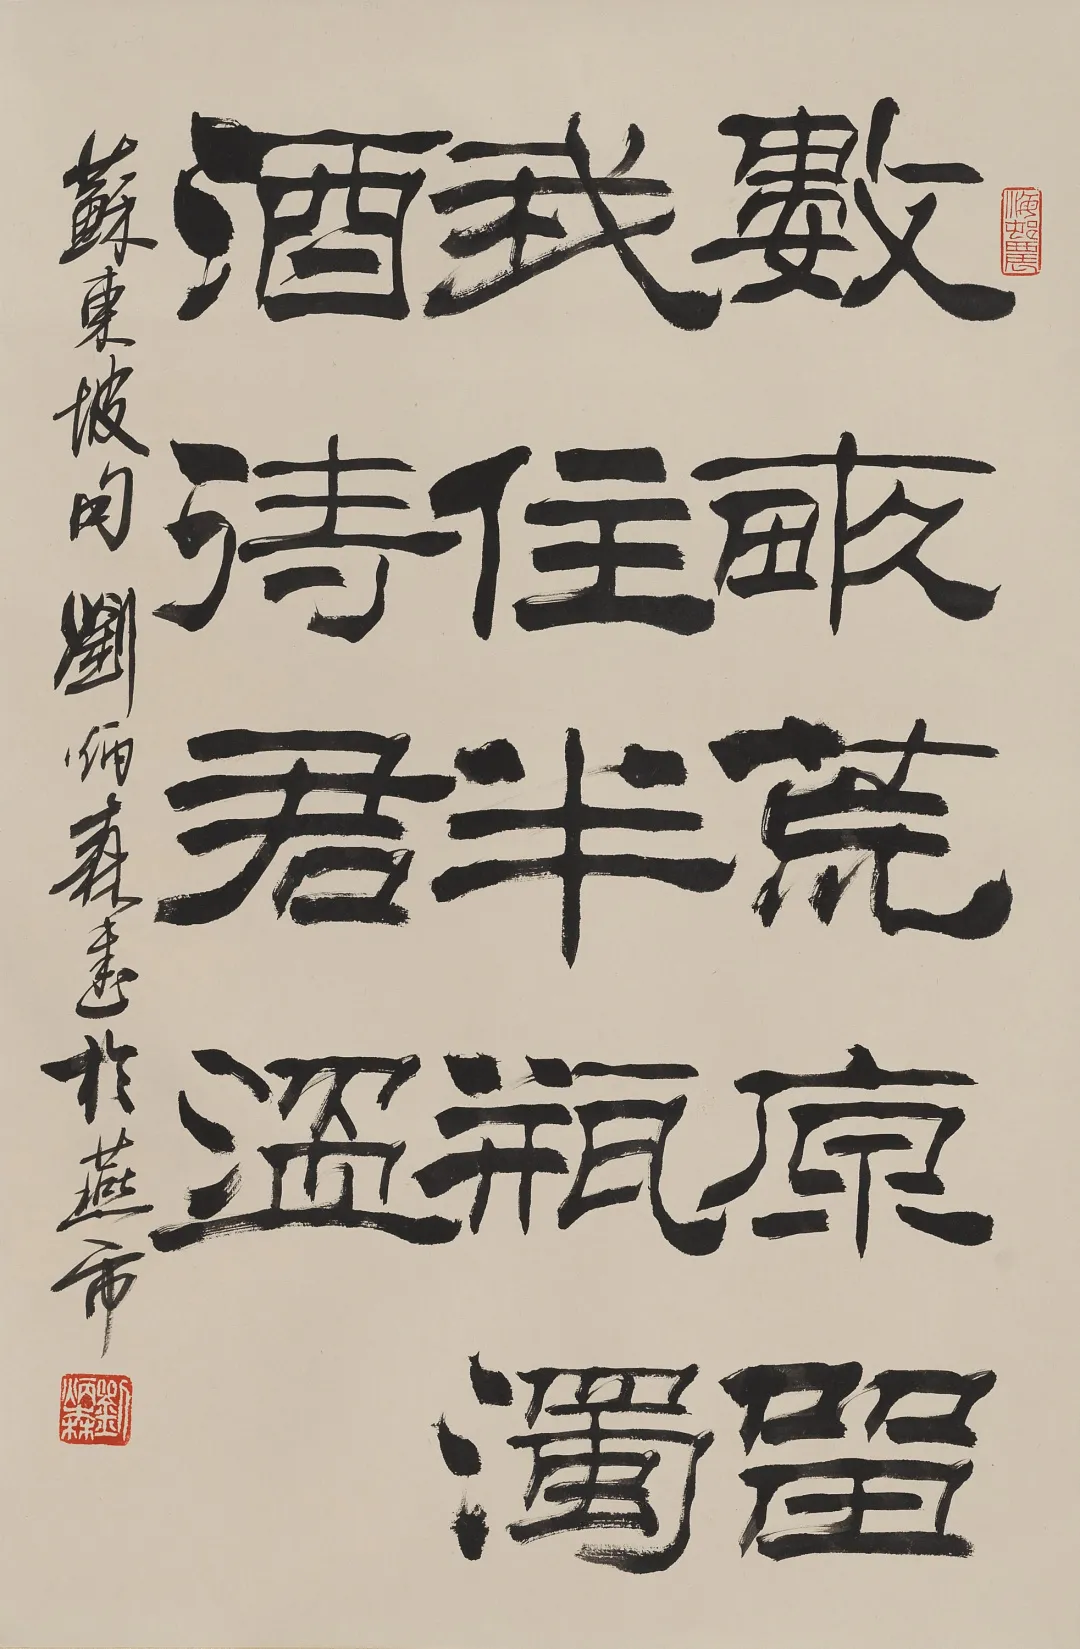 數畝荒原留
我住半瓶濁
酒待君溫
蘇東坡句 劉炳森書於燕市
劉炳森